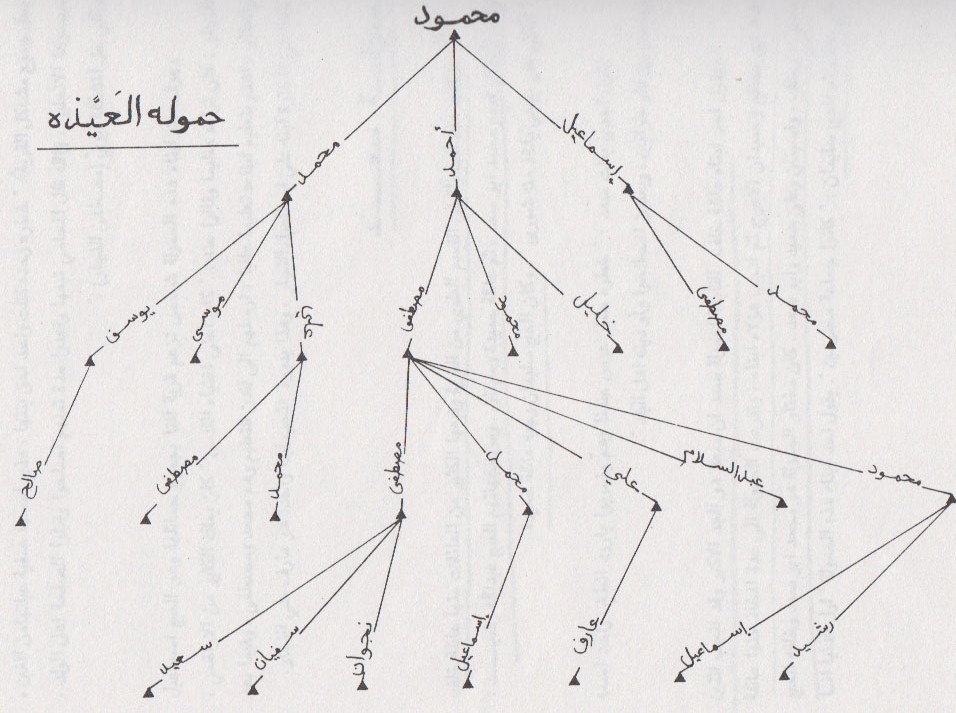 محمود
حموله العَيَّذه
إسماعيل
أحمد
محمد
محمد
مصطفى
خليل
محمود
مصطفى
موسى
يوسف
محمود
عبد السلام
علي
محمد
مصطفى
محمد
مصطفى
صالح
رشيد
إسماعيل
عارف
إسماعيل
نجوان
سفيان
سعيد